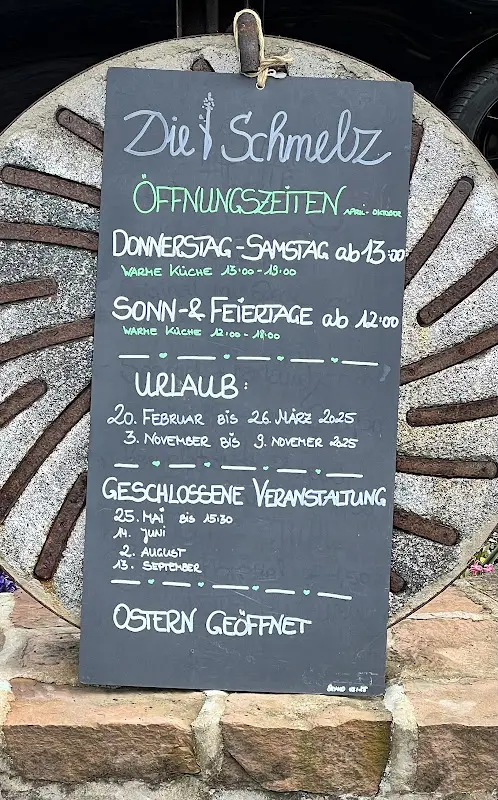 Die Schmelz
ÖFFNUNGSZEITEN APRIL - OKTOBER
DONNERSTAG - SAMSTAG ab 13:00
WARME KÜCHE 13:00 - 19:00
SONN- & FEIERTAGE ab 12:00
WARME KÜCHE 12:00 - 18:00
URLAUB:
20. FEBRUAR BIS 26. MÄRZ 2025
3. NOVEMBER BIS 9. NOVEMER 2025
GESCHLOSSENE VERANSTALTUNG
25. MAI BIS 15:30
14. JUNI
2. AUGUST
13. SEPTEMBER
OSTERN GEÖFFNET